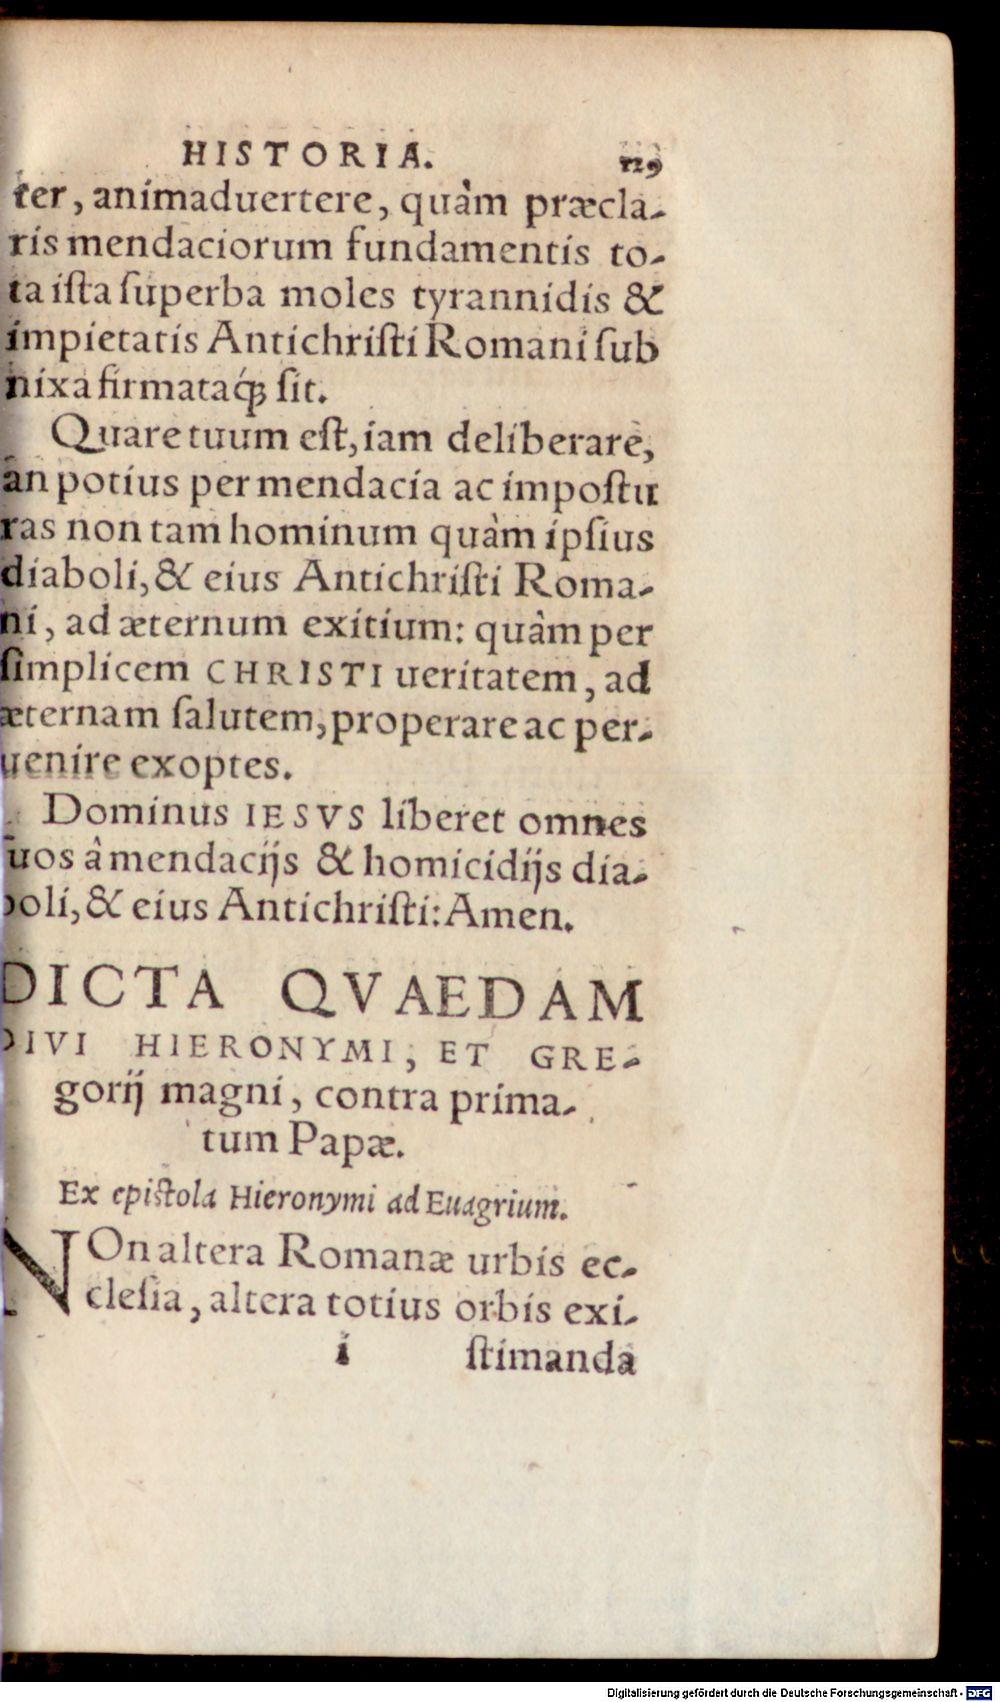 HISTORIA. 129
ter, animaduertere, quàm præcla-
ris mendaciorum fundamentis to-
ta ista superba moles tyrannidis &
impietatis Antichristi Romani sub
nixa firmataq́ꝫ sit.
Quare tuum est, iam deliberare,
an potius per mendacia ac impostu
ras non tam hominum quàm ipsius
diaboli, & eius Antichristi Roma-
ni, ad æternum exitium: quàm per
simplicem CHRISTI ueritatem, ad
æternam salutem, properare ac per-
uenire exoptes.
Dominus IESVS liberet omnes
uos â mendacijs & homicidijs dia-
boli, & eius Antichristi: Amen.
DICTA QVAEDAM
DIVI HIERONYMI, ET GRE-
gorij magni, contra prima-
tum Papæ.
Ex epistola Hieronymi ad Euagrium.
NOn altera Romanæ urbis ec-
clesia, altera totius orbis exi-
i stimanda
Digitalisierung gefördert durch die Deutsche Forschungsgemeinschaft - DFG